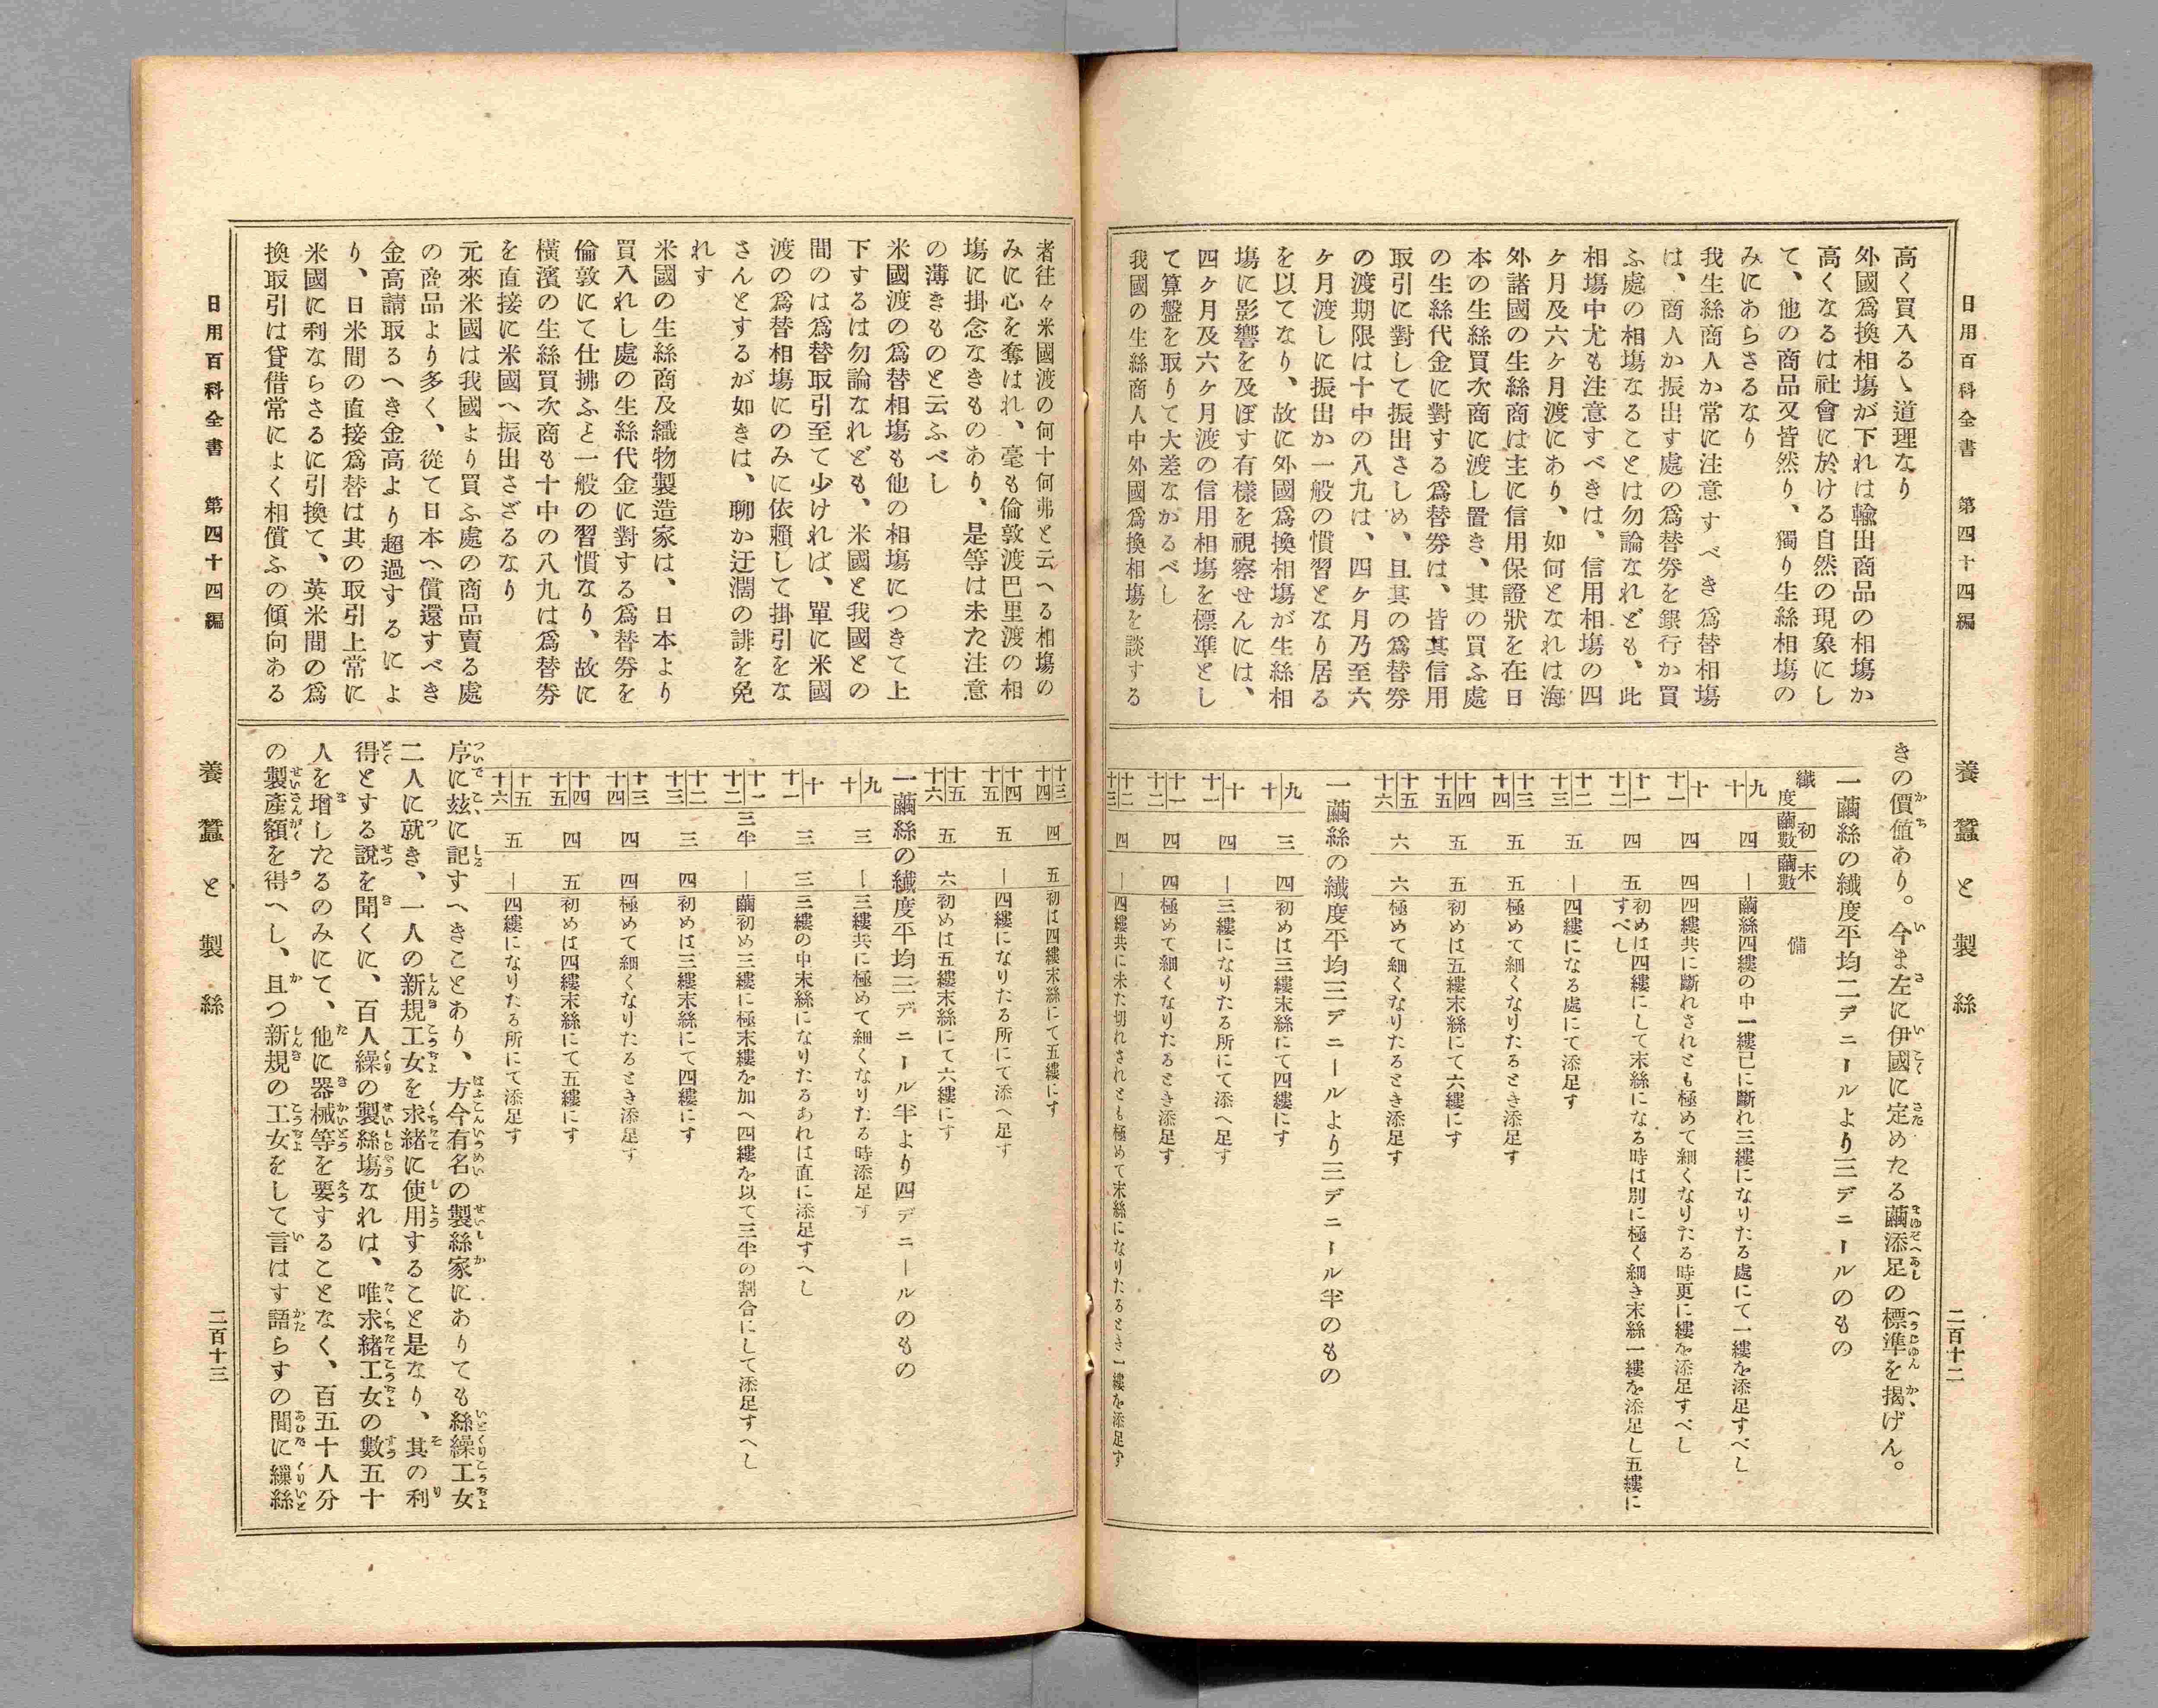 日用百科全書　第四十四編　養蠶と製絲　二百十二
高く買入るゝ道理なり
外國爲換相塲が下れは輸出商品の相塲か
高くなるは社會に於ける自然の現象にし
て、他の商品又皆然り、獨り生絲相塲の
みにあらさるなり
我生絲商人か常に注意すべき爲替相塲
は、商人か振出す處の爲替券を銀行か買
ふ處の相塲なることは勿論なれども、此
相塲中尤も注意すべきは、信用相塲の四
ヶ月及六ヶ月渡にあり、如何となれは海
外諸國の生絲商は主に信用保證狀を在日
本の生絲買次商に渡し置き、其の買ふ處
の生絲代金に對する爲替券は、皆其信用
取引に對して振出さしめ、且其の爲替券
の渡期限は十中の八九は、四ヶ月乃至六
ヶ月渡しに振出か一般の慣習となり居る
を以てなり、故に外國爲換相塲が生絲相
塲に影響を及ぼす有樣を視察せんには、
四ヶ月及六ヶ月渡の信用相塲を標準とし
て算盤を取りて大差なかるべし
我國の生絲商人中外國爲換相塲を談する
きの價値あり。今ま左に伊國に定めたる繭添足の標準を揭げん。
一繭絲の纎度平均二デニールより三デニールのもの
纎度　初繭數　末繭數　備
九｜十　四　｜　繭絲四縷の中一縷已に斷れ三縷になりたる處にて一縷を添足すべし
十｜十一　四　四　四縷共に斷れされとも極めて細くなりたる時更に縷を添足すべし
十一｜十二　四　五　初めは四縷にして末絲になる時は別に極く細き末絲一縷を添足し五縷に
すべし
十二｜十三　五　｜　四縷になる處にて添足す
十三｜十四　五　五　極めて細くなりたるとき添足す
十四｜十五　五　五　初めは五縷末絲にて六縷にす
十五｜十六　六　六　極めて細くなりたるとき添足す
一繭絲の纎度平均三デニールより三デニール半のもの
九｜十　三　四　初めは三縷末絲にて四縷にす
十｜十一　四　｜　三縷になりたる所にて添へ足す
十一｜十二　四　四　極めて細くなりたるとき添足す
十二｜十三　四　｜　四縷共に未た切れされとも極めて末絲になりたるとき一縷を添足す
者往々米國渡の何十何弗と云へる相塲の
みに心を奪はれ、毫も倫敦渡巴里渡の相
塲に掛念なきものあり、是等は未た注意
の薄きものと云ふべし
米國渡の爲替相塲も他の相塲につきて上
下するは勿論なれども、米國と我國との
間のは爲替取引至て少ければ、單に米國
渡の爲替相塲にのみに依賴して掛引をな
さんとするが如きは、聊か迂濶の誹を免
れす
米國の生絲商及織物製造家は、日本より
買入れし處の生絲代金に對する爲替券を
倫敦にて仕拂ふと一般の習慣なり、故に
橫濱の生絲買次商も十中の八九は爲替券
を直接に米國へ振出さざるなり
元來米國は我國より買ふ處の商品賣る處
の商品より多く、從て日本へ償還すべき
金高請取るへき金高より超過するによ
り、日米間の直接爲替は其の取引上常に
米國に利ならさるに引換て、英米間の爲
換取引は貸借常によく相償ふの傾向ある
十三｜十四　四　五　初は四縷末絲にて五縷にす
十四｜十五　五　｜　四縷になりたる所にて添へ足す
十五｜十六　五　六　初めは五縷末絲にて六縷にす
一繭絲の纎度平均三デニール半より四デニールのもの
九｜十　三　｜　三縷共に極めて細くなりたる時添足す
十｜十一　三　三　三縷の中末絲になりたるあれは直に添足すへし
十一｜十二　三半　｜　繭初め三縷に極末縷を加へ四縷を以て三半の割合にして添足すへし
十二｜十三　三　四　初めは三縷末絲にて四縷にす
十三｜十四　四　四　極めて細くなりたるとき添足す
十四｜十五　四　五　初めは四縷末絲にて五縷にす
十五｜十六　五　｜　四縷になりたる所にて添足す
序に玆に記すへきことあり、方今有名の製絲家にありても絲繰工女
二人に就き、一人の新規工女を求緒に使用すること是なり、其の利
得とする說を聞くに、百人繰の製絲塲なれは、唯求緒工女の數五十
人を增したるのみにて、他に器械等を要することなく、百五十人分
の製產額を得へし、且つ新規の工女をして言はす語らすの間に繅絲
日用百科全書　第四十四編　養蠶と製絲　二百十三